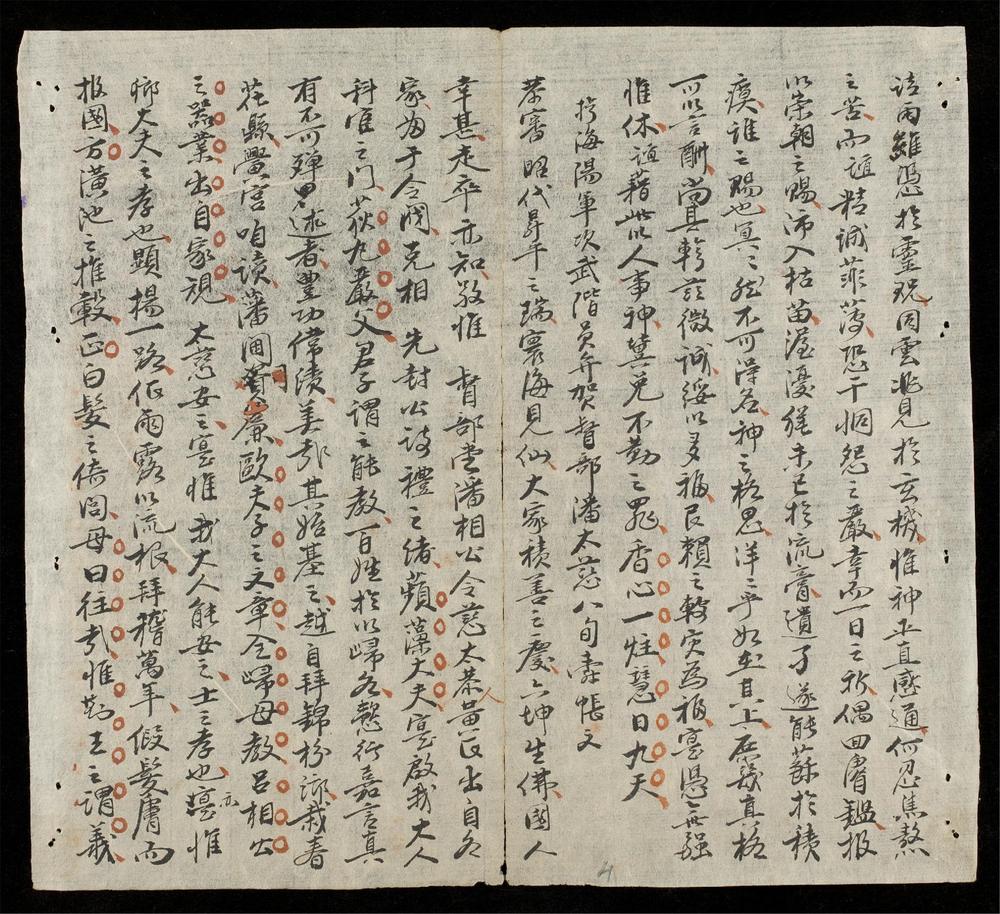 請雨雖憑於靈貺因雲兆見於玄機惟神正直感通何忍焦熬
之苦而誼精誠菲薄恐干恫怨之嚴幸而一日之祈偶回睿鑑报
以崇朝之賜沛入枯苗渥優繼未已於流膏遺了遂能蘇於積
瘼誰之賜也冥之然不可淂名神之格思洋〻乎如在其上庶幾真格
可以言酬尚其轉玆微誠綏以多福民賴之轉灾為福寔憑無疆
惟休誼藉此以人事神冀免不勤之罪香心一炷慧日九天
扵海陽軍次武階員弁贺督部潘太慈八旬壽帳文
恭審昭代昇平之瑞寰海見仙大家積善之慶六坤生佛國人
幸甚走卒亦知敬惟 督部堂潘相公令慈太恭黃氏出自名
家為于令閥克相 先封公詩禮之緒蘋藻大夫寔啟我大人
科宦之门荻丸嚴父君子謂之能教百姓於以歸名懿行嘉言真
有不可殫思述者豊功偉績美哉其始基之越自拜錦枌鄉栽春
花縣黌宮咱讀藩囲司賞廉歐夫子之文章全歸母教吕相公
之器業出自家視 太慈安之寔惟 我大人能安之士之孝也寔亦惟
鄉大夫之孝也顯揚一路佰雨露以流根拜稽萬年假髮膚而
报國方潢池之推轂正白髮之倚閭母曰往哉惟勤王之謂義